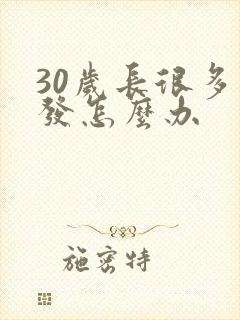 30歲長很多
發怎麼办
施密特